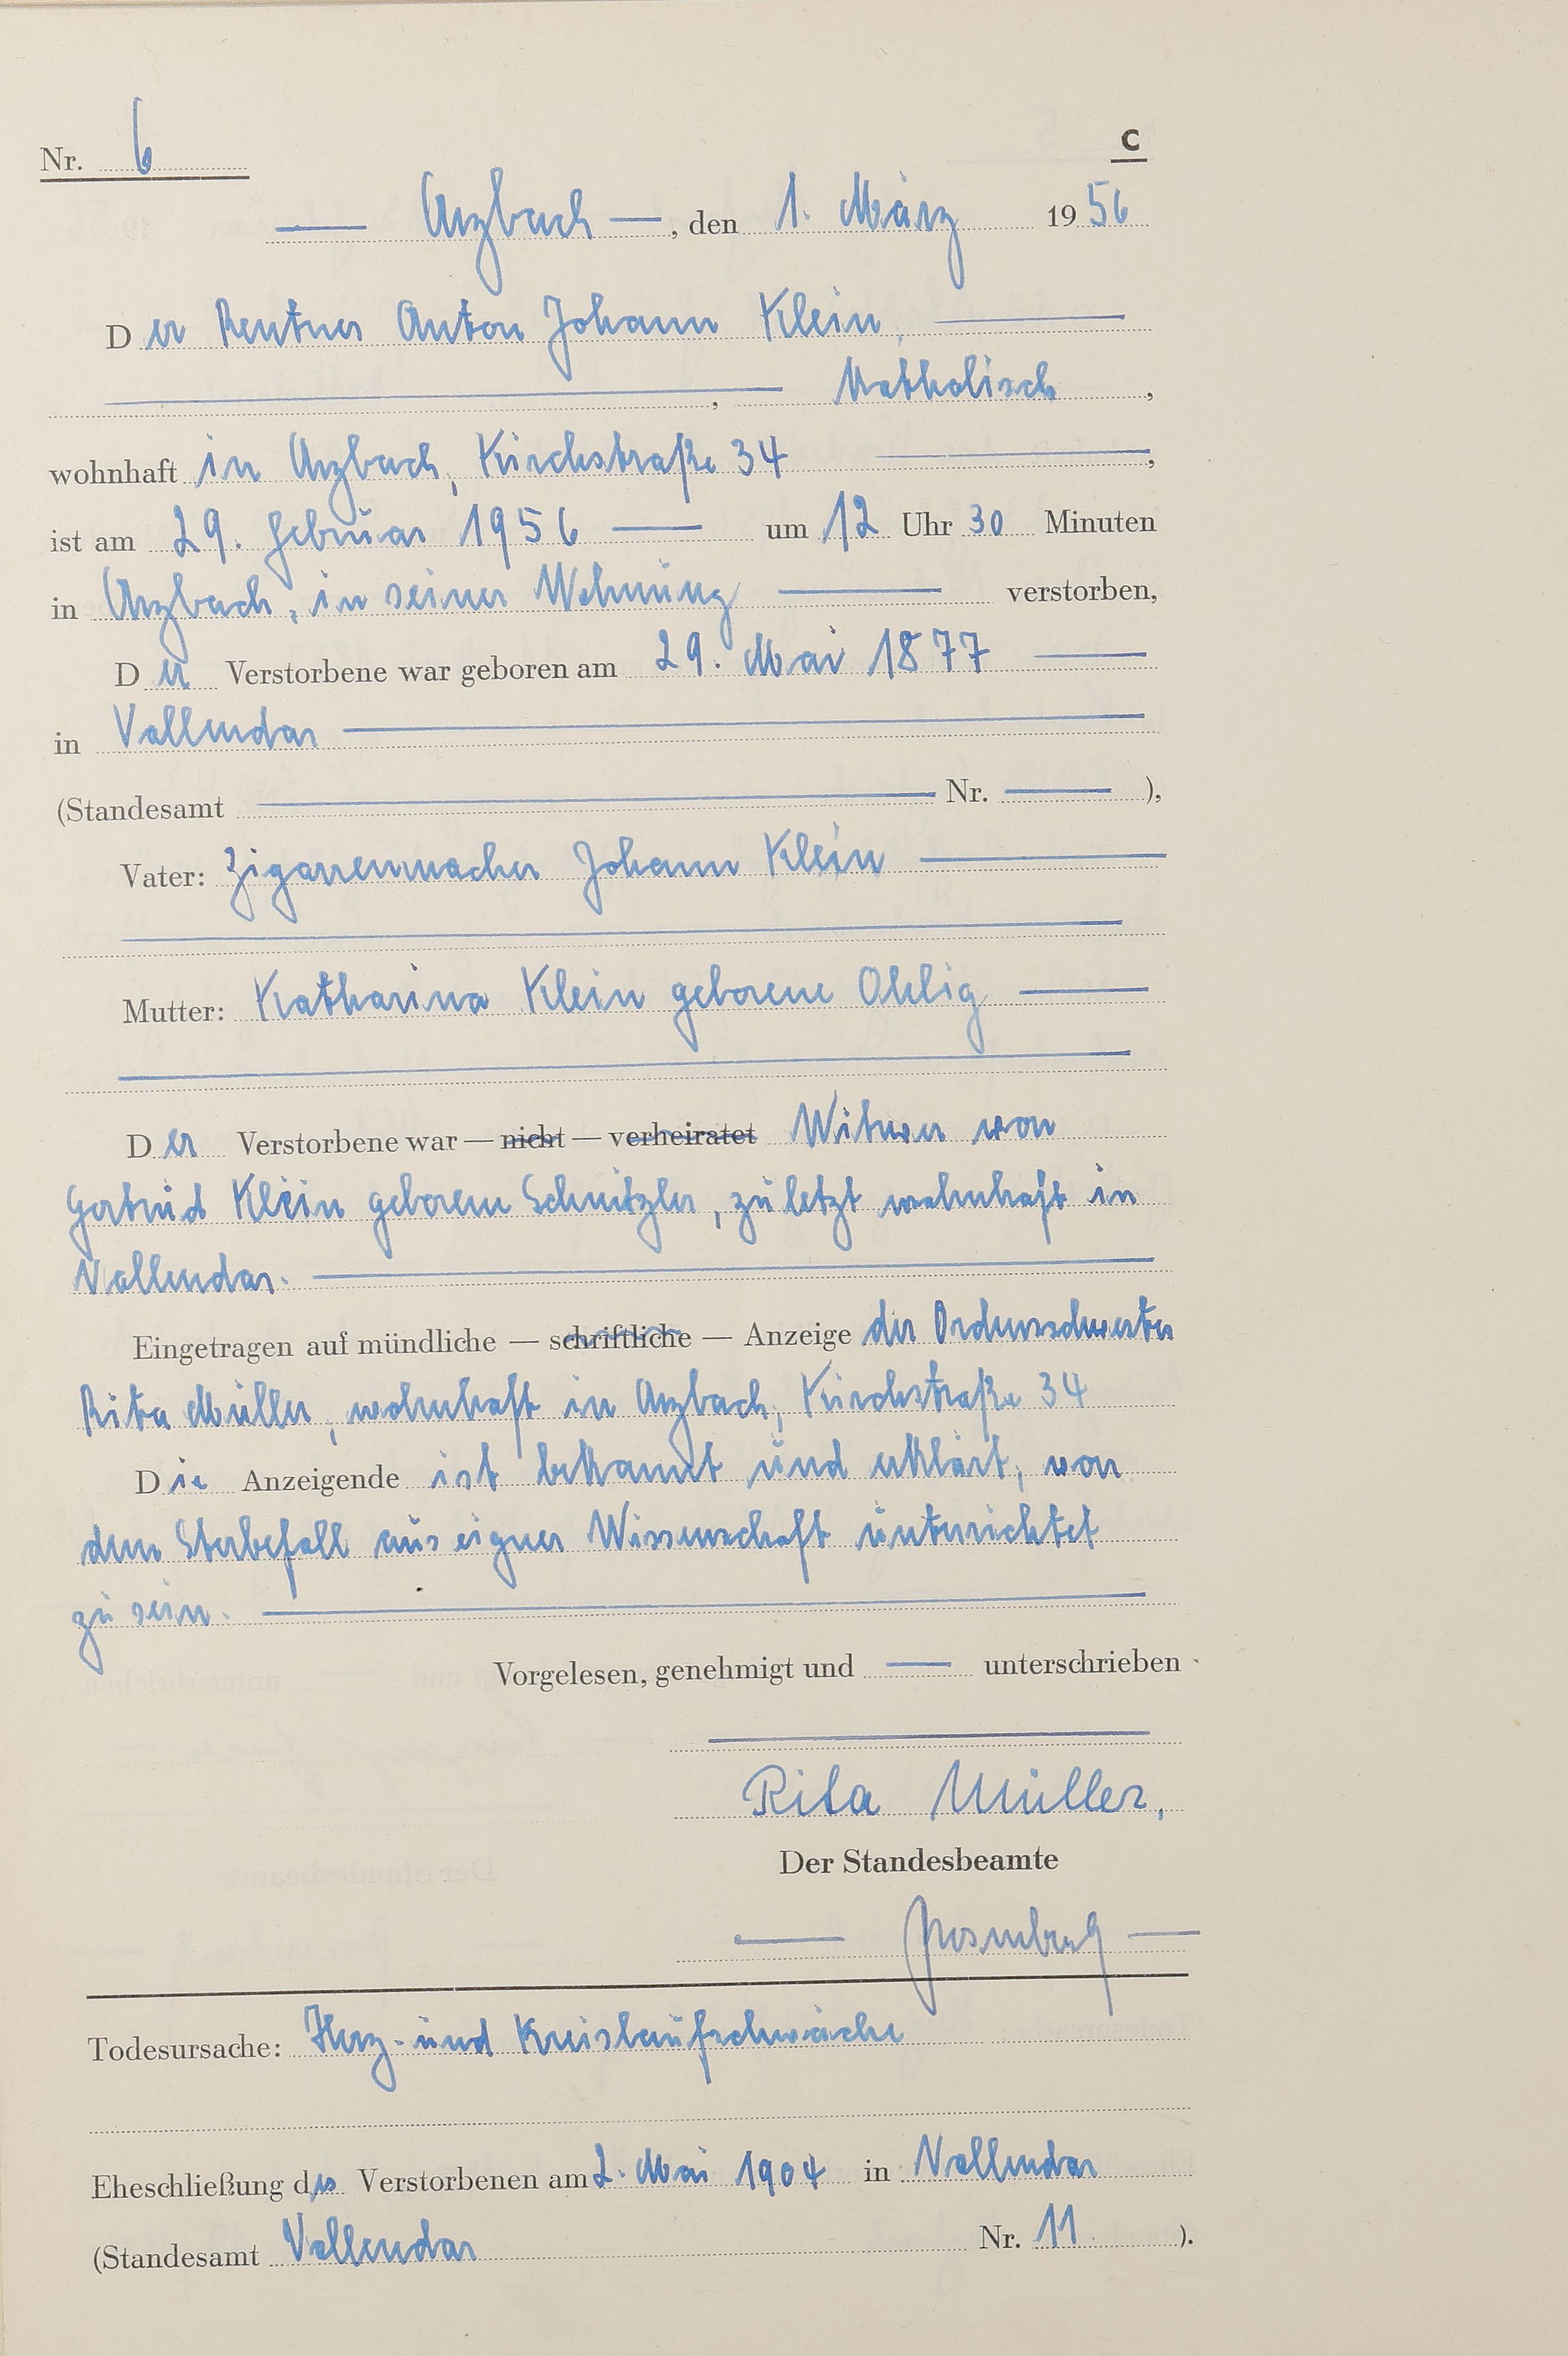 Nr. 6
C
Arzbach, den 1. März 1956
Der Rentner Anton Johann Klein
, Katholisch,
wohnhaft in Arzbach, Kirchstraße 34,
ist am 29. Februar 1956 um 12 Uhr 30 Minuten
in Arzbach, in seiner Wohnung verstorben,
Der Verstorbene war geboren am 29. Mai 1877
in Vallendar
(Standesamt Nr. ),
Vater: Zigarrenmacher Johann Klein
Mutter: Katharina Klein geborene Ohlig
Der Verstorbene war — nicht — verheiratet Witwer von
Gertrud Klein geborene Schnitzler, zuletzt wohnhaft in
Vallendar.
Eingetragen auf mündliche — schriftliche — Anzeige der Ordensschwester
Rita Müller, wohnhaft in Arzbach, Kirchstraße 34
Die Anzeigende ist bekannt und erklärt, von
dem Sterbefall aus eigner Wissenschaft unterrichtet
zu sein.
Vorgelesen, genehmigt und unterschrieben
Rita Müller,
Der Standesbeamte
Todesursache: Herz- und Kreislaufschwäche
Eheschließung des Verstorbenen am 2. Mai 1904 in Vallendar
(Standesamt Vallendar Nr. 11 ).